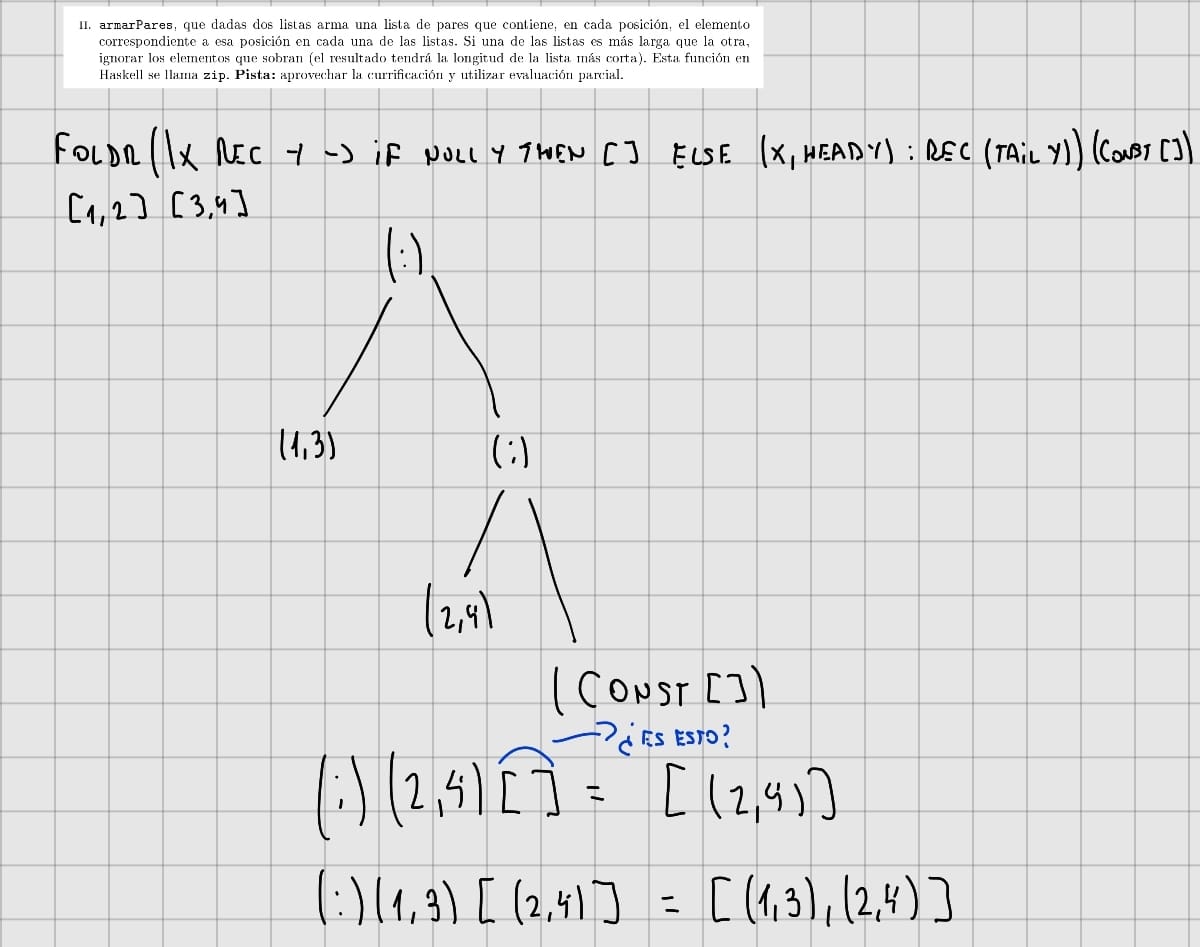 II. armarPares, que dadas dos listas arma una lista de pares que contiene, en cada posición, el elemento
correspondiente a esa posición en cada una de las listas. Si una de las listas es más larga que la otra,
ignorar los elementos que sobran (el resultado tendrá la longitud de la lista más corta). Esta función en
Haskell se llama zip. Pista: aprovechar la currificación y utilizar evaluación parcial.
FOLDR (\X REC Y -> iF NULL Y THEN [] ELSE (X, HEAD Y) : REC (TAiL Y)) (CONST [])
[1,2] [3,4]
(:)
(1,3)
(:)
(2,4)
(CONST [])
¿ES ESTO?
(:) (2,4) [] = [(2,4)]
(:) (1,3) [(2,4)] = [(1,3),(2,4)]